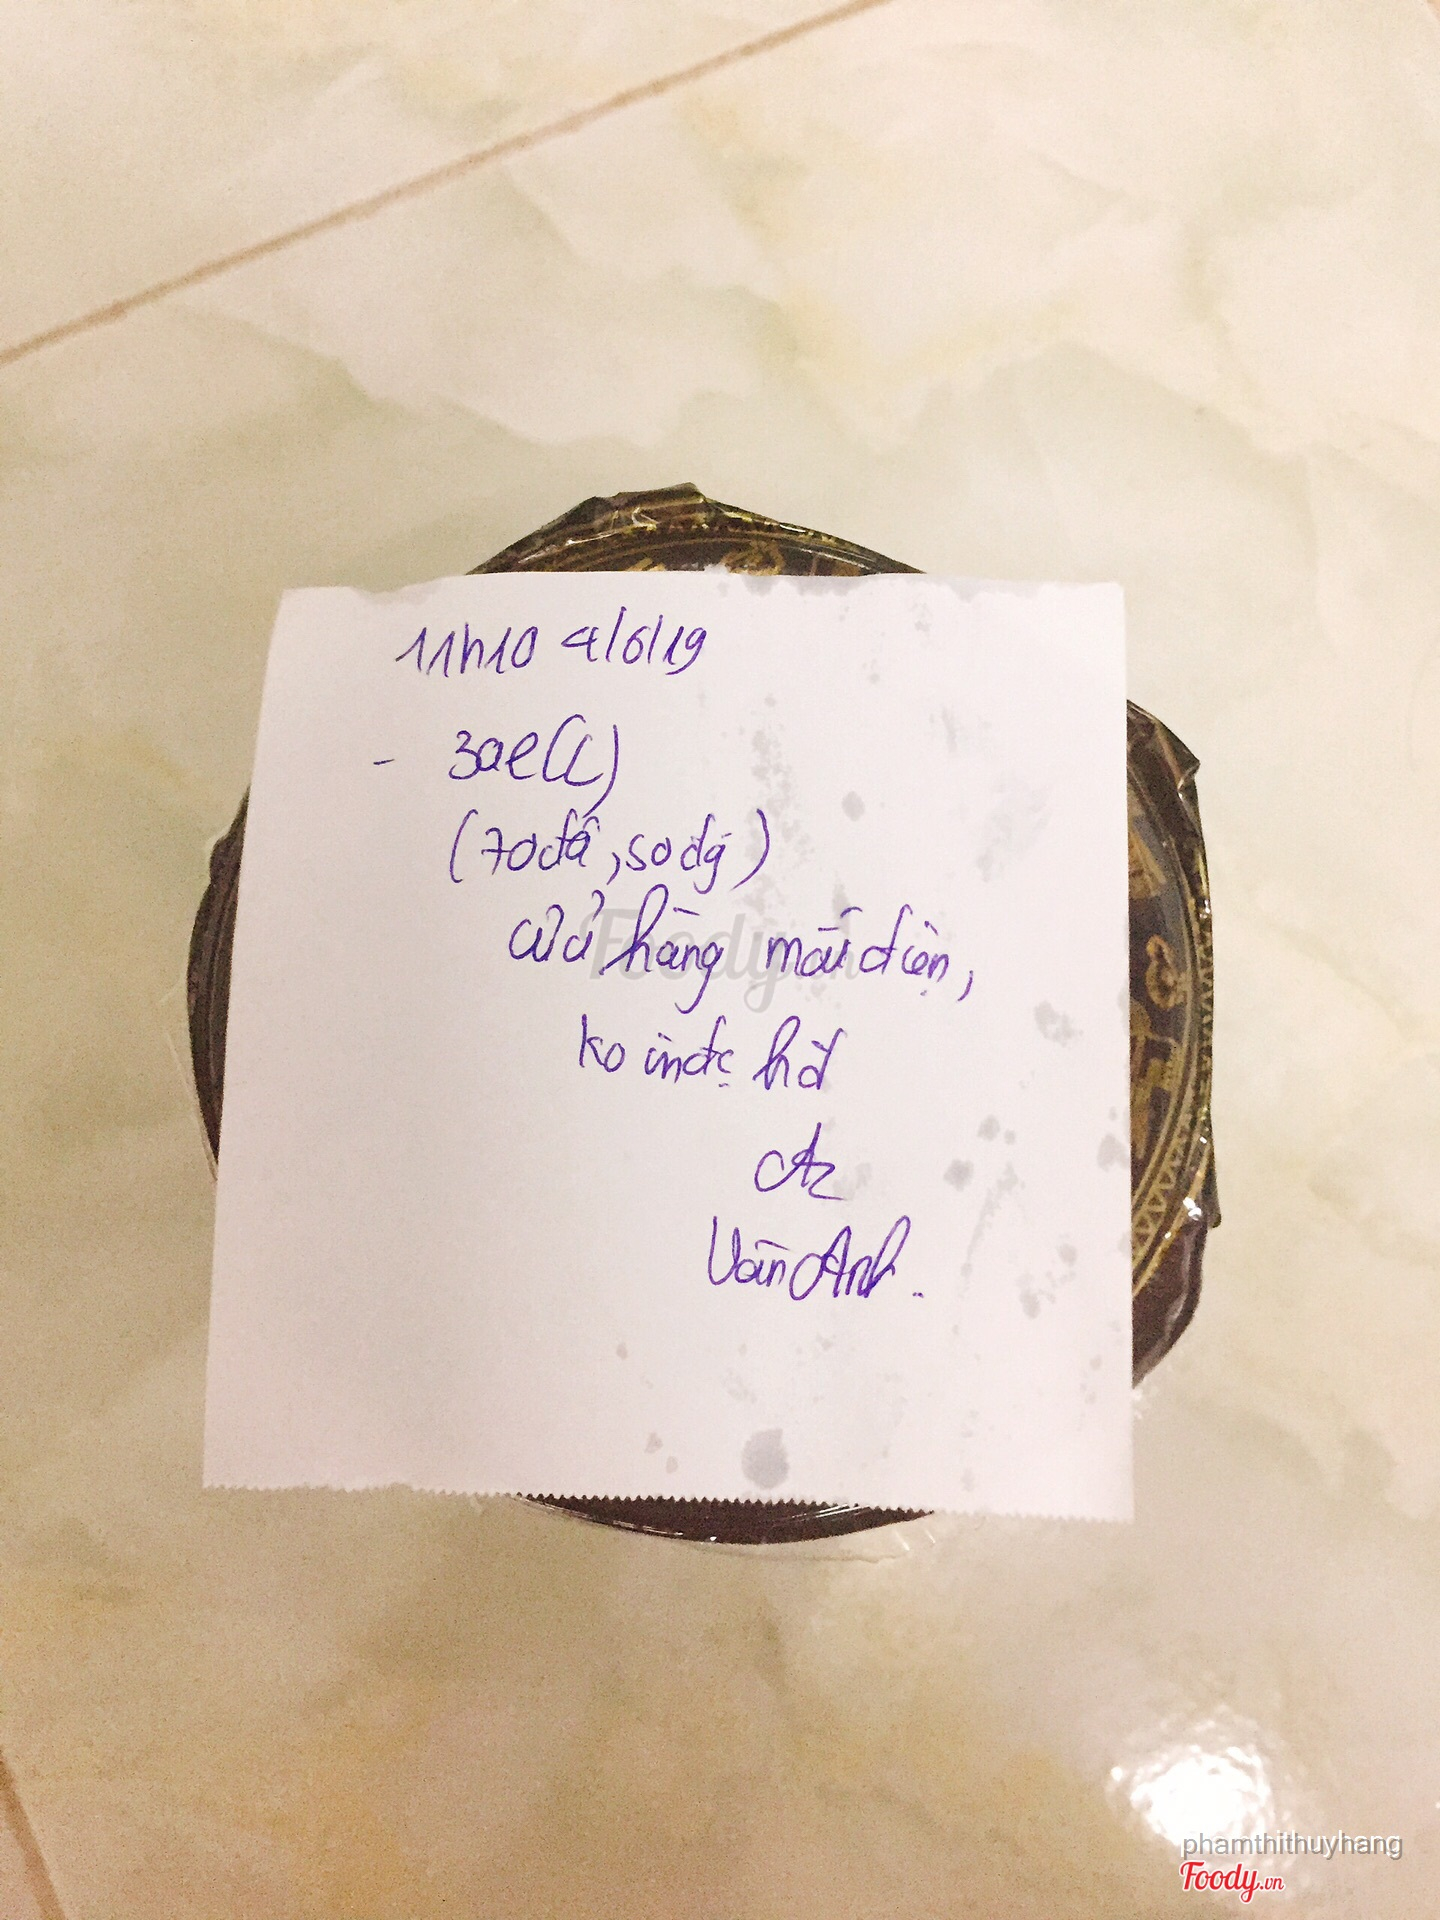 11h10 4/6/19
- 3ae(L)
(70đá, 50đg)
cửa hàng mất điện,
ko inđc hđ
Vân Anh..
Foody.vn
phamthithuyhang
Foody.vn